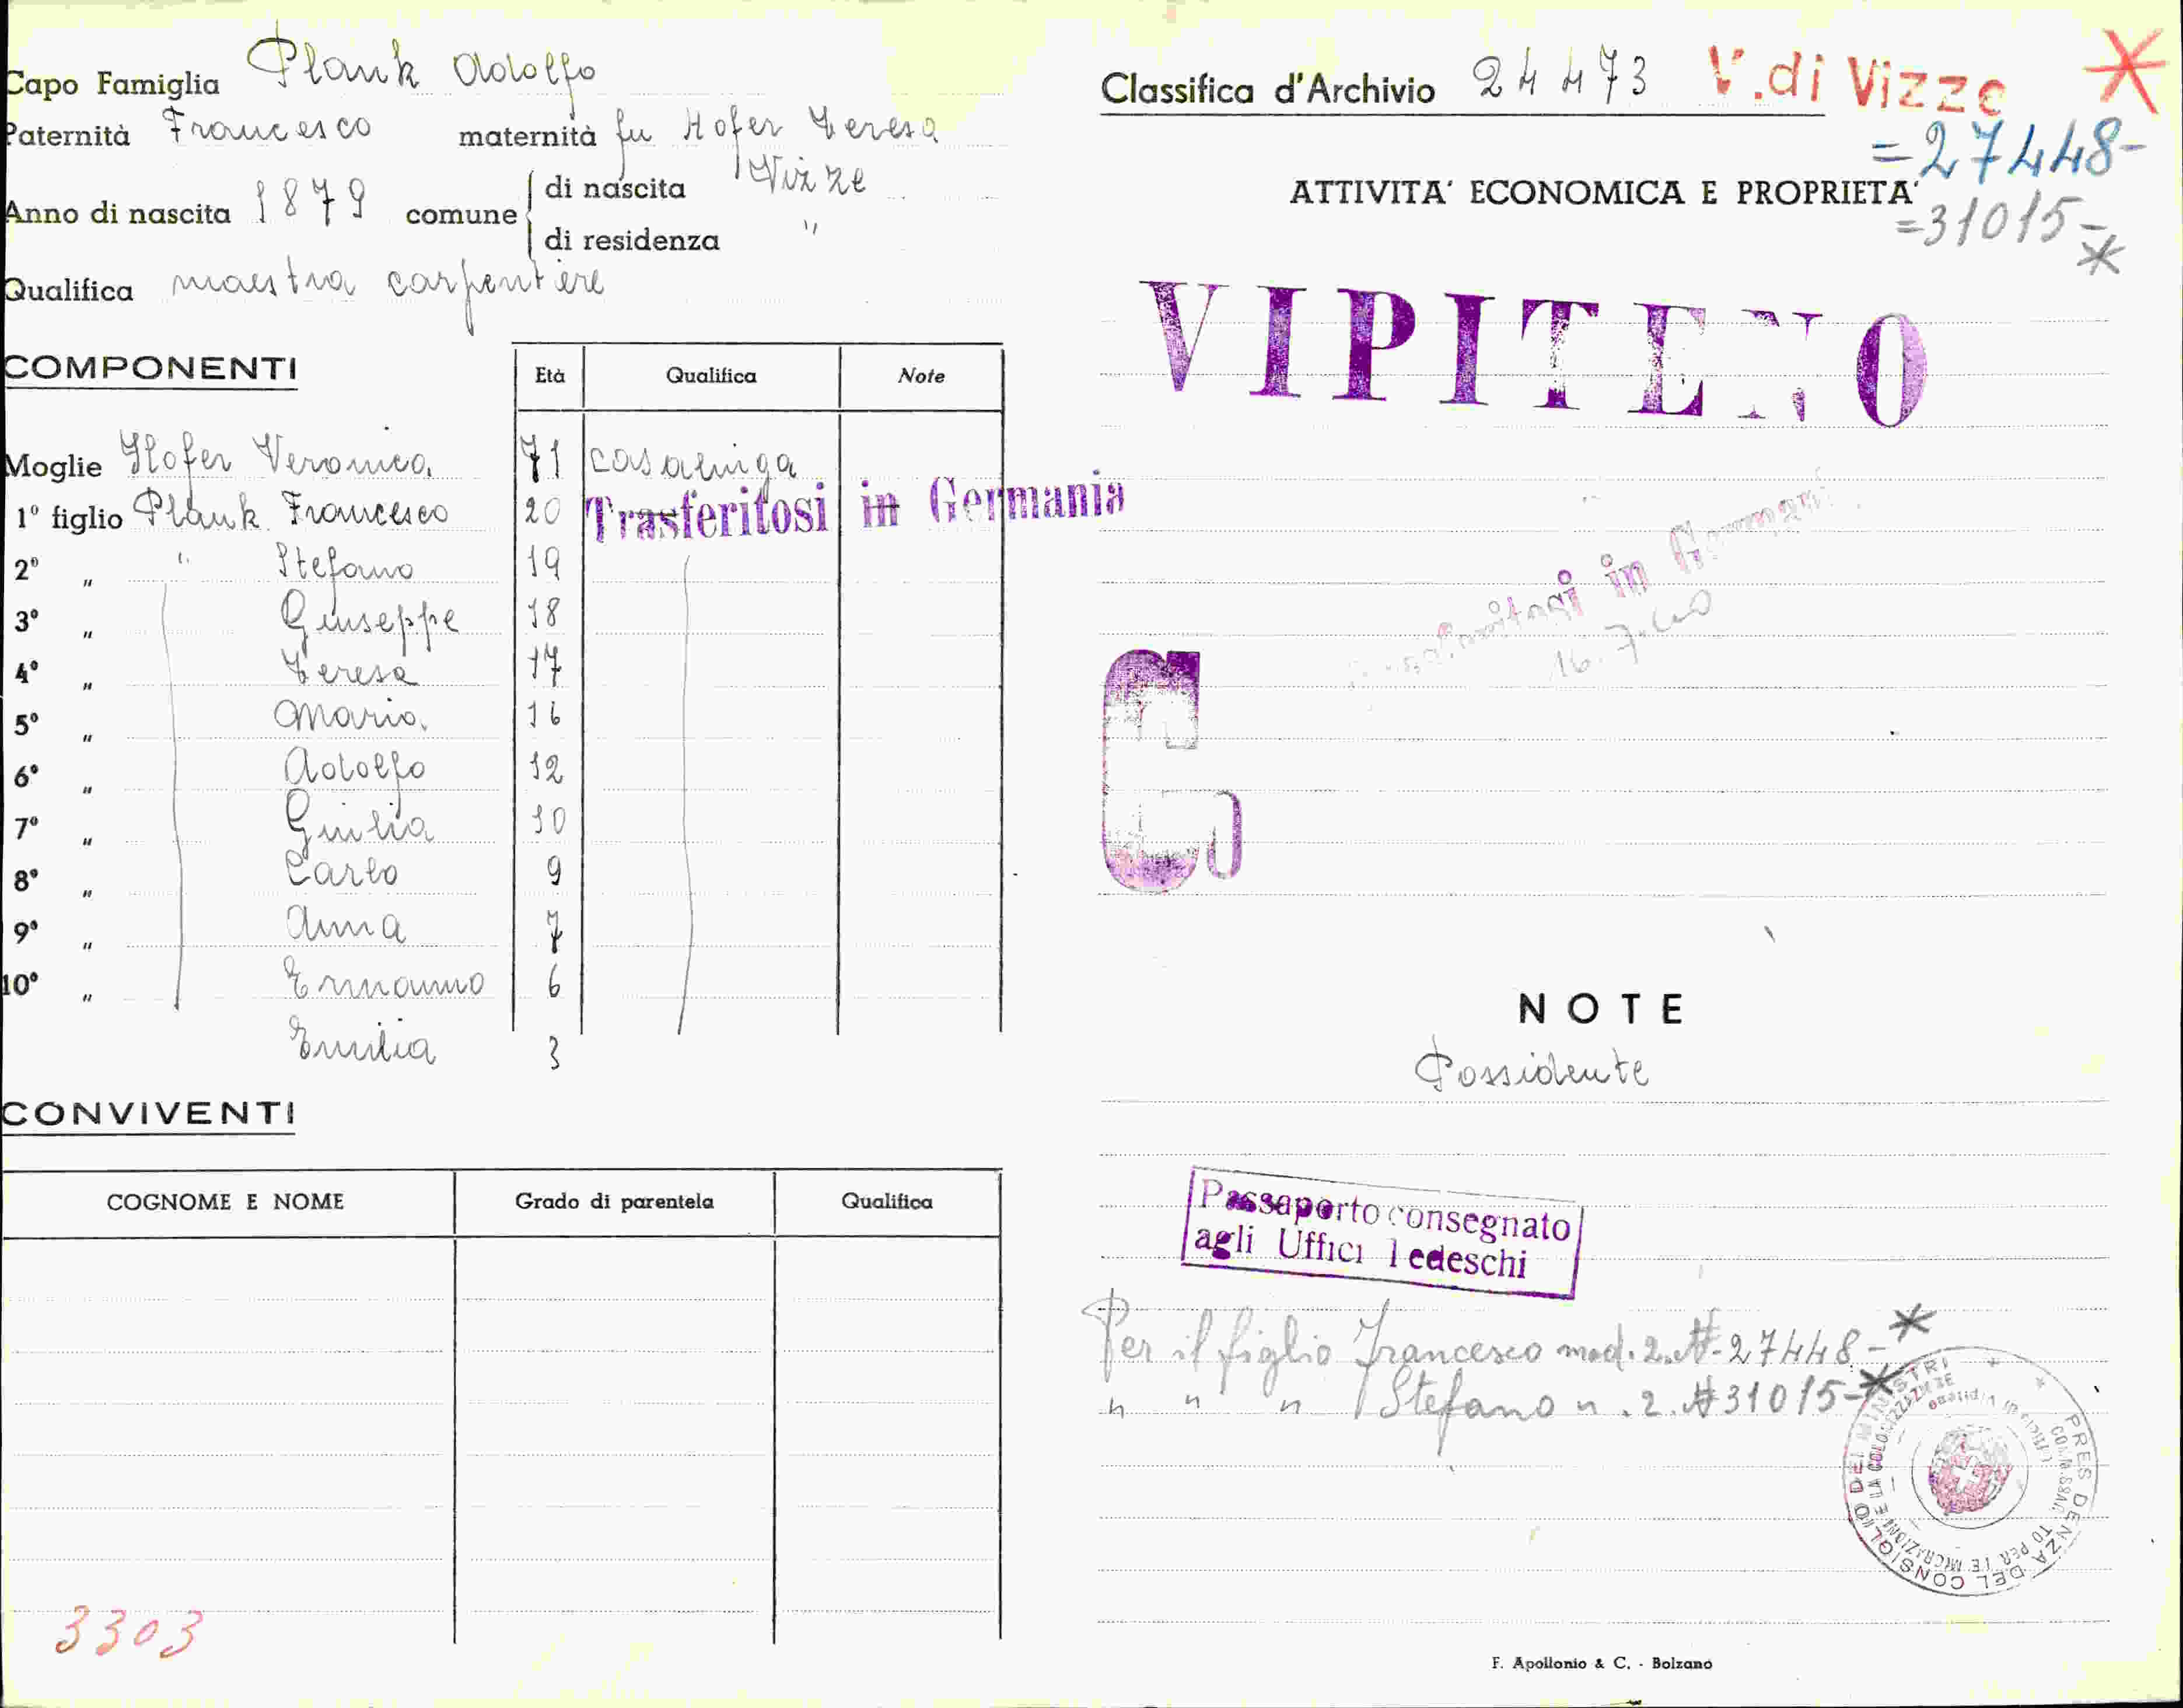 Capo Famiglia Plank Adolfo
Paternità Francesco maternità fu Hofer Teresa
Anno di nascita 1879 comune di nascita Vizze
di residenza "
Qualifica maestra carpentiere
COMPONENTI
Età Qualifica Note
Moglie Hofer Veronica 71 casalinga
1° figlio Plank Francesco 20 Trasferitosi in Germania
2° " " Stefano 19
3° " Giuseppe 18
4° " Teresa 17
5° " Maria 16
6° " Adolfo 12
7° " Giulia 10
8° " Carlo 9
9° " Anna 7
10° " Ermanno 6
Emilia 3
CONVIVENTI
COGNOME E NOME Grado di parentela Qualifica
3303
Classifica d'Archivio 24473 V. di Vizze *
=27448-
ATTIVITA' ECONOMICA E PROPRIETA'
=31015- *
VIPITENO
Trasferitosi in Germania
16.7.40
G
NOTE
Possidente
Passaporto consegnato
agli Uffici Tedeschi
Per il figlio Francesco mod. 2. N. 27448- *
" " " Stefano " . 2. N 31015- *
PRESIDENZA DEL CONSIGLIO DEI MINISTRI
COMMISSARIATO PER LE MIGRAZIONI E LA COLONIZZAZIONE
Ufficio di Vipiteno
F. Apollonio & C. - Bolzano